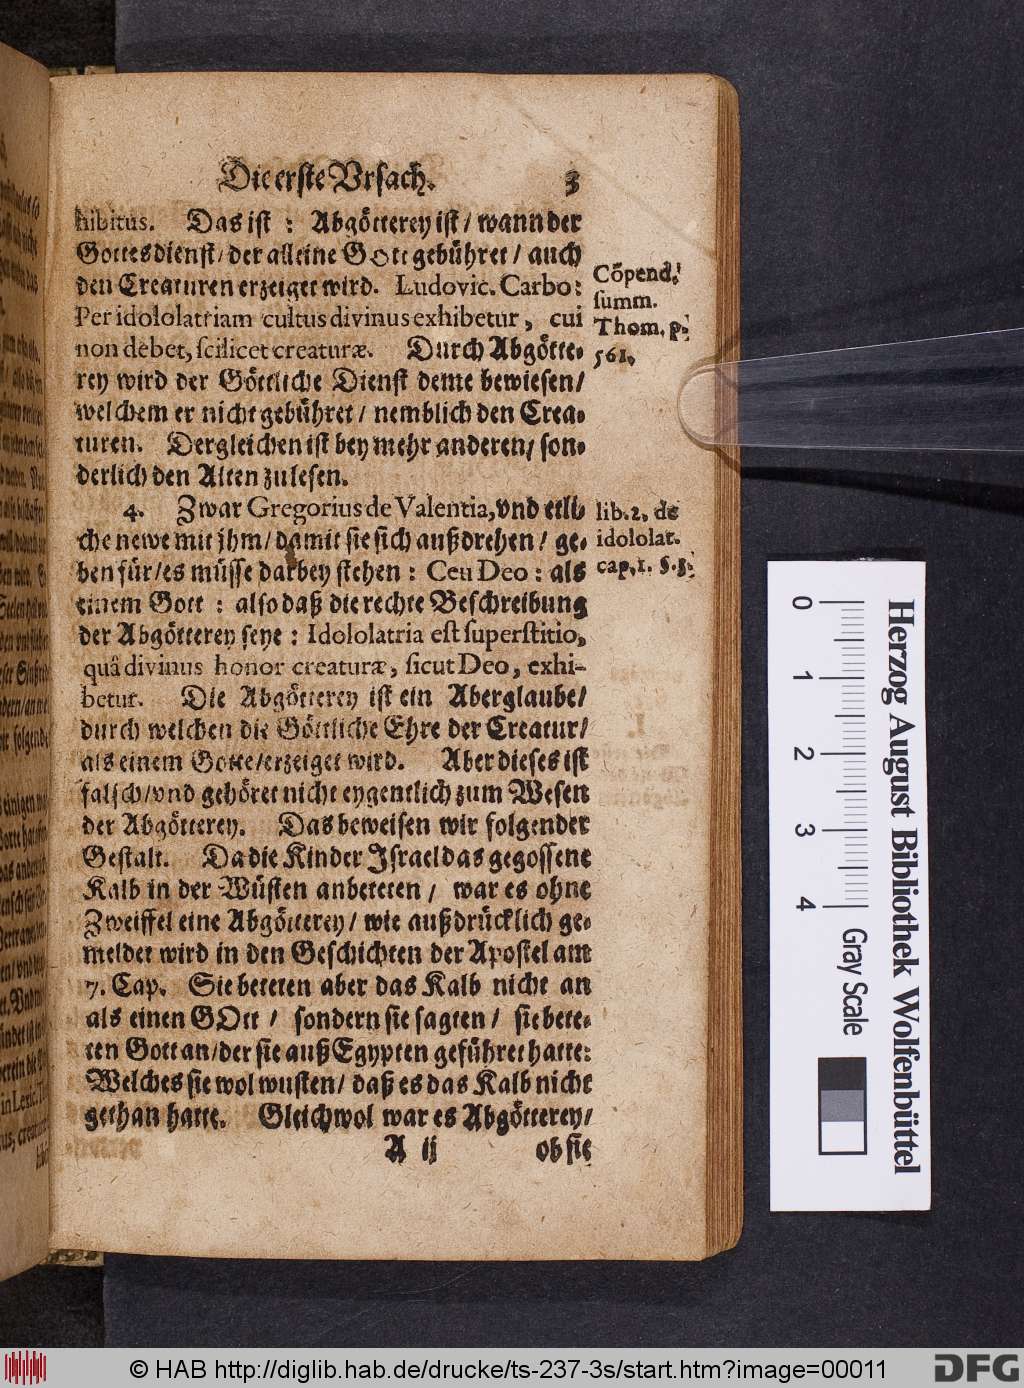 Die erste Vrsach. 3
hibitus. Das ist : Abgötterey ist / wann der
Gottesdienst / der alleine GOtt gebühret / auch
den Creaturen erzeiget wird. Ludovic. Carbo:
Per idololatriam cultus divinus exhibetur, cui
non debet, scilicet creaturæ. Durch Abgötte-
rey wird der Göttliche Dienst deme bewiesen /
welchem er nicht gebühret / nemblich den Crea-
turen. Dergleichen ist bey mehr anderen / son-
derlich den Alten zu lesen.
Cõpend.
summ.
Thom. p.
561.
4. Zwar Gregorius de Valentia, vnd etli-
che newe mit jhm / damit sie sich außdrehen / ge-
ben für / es müsse darbey stehen : Ceu Deo : als
einem Gott : also daß die rechte Beschreibung
der Abgötterey seye : Idololatria est superstitio,
quâ divinus honor creaturæ, sicut Deo, exhi-
betur. Die Abgötterey ist ein Aberglaube /
durch welchen die Göttliche Ehre der Creatur /
als einem Gotte / erzeiget wird. Aber dieses ist
falsch / vnd gehöret nicht eygentlich zum Wesen
der Abgötterey. Das beweisen wir folgender
Gestalt. Da die Kinder Israel das gegossene
Kalb in der Wüsten anbeteten / war es ohne
Zweiffel eine Abgötterey / wie außdrücklich ge-
meldet wird in den Geschichten der Apostel am
7. Cap. Sie beteten aber das Kalb nicht an
als einen GOtt / sondern sie sagten / sie bete-
ten Gott an / der sie auß Egypten geführet hatte:
Welches sie wol wusten / daß es das Kalb nicht
gethan hatte. Gleichwol war es Abgötterey /
lib. 2. de
idololat.
cap. 1. §. 3.
A ij ob sie
Herzog August Bibliothek Wolfenbüttel
0 1 2 3 4
Gray Scale
© HAB http://diglib.hab.de/drucke/ts-237-3s/start.htm?image=00011
DFG